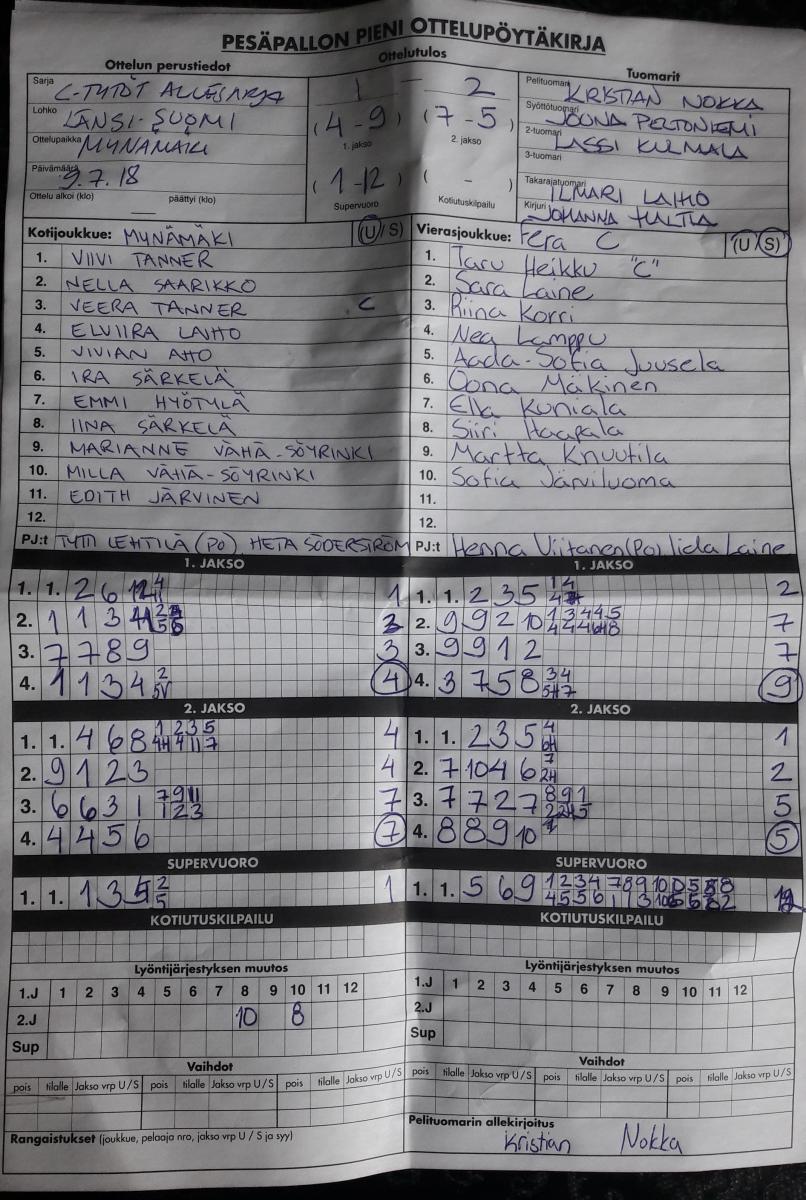 PESÄPALLON PIENI OTTELUPÖYTÄKIRJA
Ottelun perustiedot
Ottelutulos
Tuomarit
Sarja C-TYTÖT ALUESARJA
1 - 2
Pelituomari KRISTIAN NOKKA
Lohko LÄNSI-SUOMI
(4-9) (7-5)
1. jakso 2. jakso
Syöttötuomari JOONA PELTONIEMI
Ottelupaikka MYNÄMÄKI
2-tuomari LASSI KULMALA
3-tuomari
Päivämäärä 9.7.18
(1-12) ( - )
Supervuoro Kotiutuskilpailu
Takarajatuomari ILMARI LAIHO
Ottelu alkoi (klo) päättyi (klo)
Kirjuri JOHANNA HULTIA
Kotijoukkue: MYNÄMÄKI (U/S)
Vierasjoukkue: Fera C (U/S)
1. VIIVI TANNER
1. Taru Heikku "C"
2. NELLA SAARIKKO
2. Sara Laine
3. VEERA TANNER C
3. Riina Korri
4. ELVIIRA LAIHO
4. Nea Lamppu
5. VIVIAN AHO
5. Aada-Sofia Juusela
6. IRA SÄRKELÄ
6. Oona Mäkinen
7. EMMI HYÖTYLÄ
7. Ella Kuniala
8. IINA SÄRKELÄ
8. Siiri Haapala
9. MARIANNE VÄHÄ-SÖYRINKI
9. Martta Knuutila
10. MILLA VÄHÄ-SÖYRINKI
10. Sofia Järviluoma
11. EDITH JÄRVINEN
11.
12.
12.
PJ:t TYTTI LEHTILÄ (PO) HETA SÖDERSTRÖM
PJ:t Henna Viitanen (Po) Iida Laine
1. JAKSO
1. JAKSO
1. 1. 2 6 1
1. 1. 2 3 5 2
2. 1 1 3 4 3
2. 9 9 2 10 7
3. 7 7 8 9 3
3. 9 9 1 2 7
4. 1 1 3 4 4
4. 3 7 5 8 9
2. JAKSO
2. JAKSO
1. 1. 4 6 8 4
1. 1. 2 3 5 1
2. 9 1 2 3 4
2. 7 10 4 6 2
3. 6 6 3 1 7
3. 7 7 2 7 5
4. 4 4 5 6 7
4. 8 8 9 10 5
SUPERVUORO
SUPERVUORO
1. 1. 1 3 1
1. 1. 5 6 9 12
KOTIUTUSKILPAILU
KOTIUTUSKILPAILU
Lyöntijärjestyksen muutos
Lyöntijärjestyksen muutos
1.J 1 2 3 4 5 6 7 8 9 10 11 12
1.J 1 2 3 4 5 6 7 8 9 10 11 12
2.J 10 8
2.J
Sup
Sup
Vaihdot
Vaihdot
pois tilalle Jakso vrp U / S pois tilalle Jakso vrp U / S pois tilalle Jakso vrp U / S
pois tilalle Jakso vrp U / S pois tilalle Jakso vrp U / S pois tilalle Jakso vrp U / S
Rangaistukset (joukkue, pelaaja nro, jakso vrp U / S ja syy)
Pelituomarin allekirjoitus
Kristian Nokka